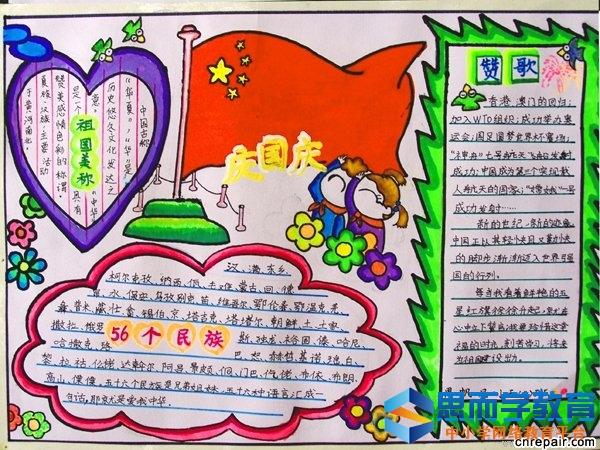 赞歌
香港、澳门的回归,
加入WTO组织,成功举办奥
运会,国足圆梦世界杯赛场,
"神舟"七号航天飞船发射
成功,中国成为第三个实现载
人航天的国家,"嫦娥"一号
成功发射……
新的世纪,新的
中国正以其轻快且又
的脚步渐渐迈入世界
国的行列。
每当我看着鲜艳的五
星红旗徐徐升起,
祖国美称
中国古称
"华夏","华"是
历史悠久文化发达之
意。
是一个
"中华"
具有
赞美感情色彩的称谓。
良族、汉族主要活动
于黄河南北。
庆国庆
汉、满、东乡、
柯尔克孜、纳西、佤、
蒙古、回、傣、
水、保安、乌孜别克、苗、维吾尔、鄂伦春、鄂温克、
普米、藏、壮、
锡伯、京、塔吉克、
塔塔尔、朝鲜、土、土家、
撒拉、俄罗
斯、独龙、裕固、傣、哈尼、
56个民族
哈萨克、珞
巴、怒、赫哲、基诺、
黎、拉祜、仡佬、达斡尔、阿昌、景颇、侗、门巴、仫佬、布依、布朗、
高山、傈僳。五十六个民族是兄弟姐妹,五十六种语言汇成一
句话,那就是爱我中华。
思而学教育
中小学网络教育平台
cnrepair.com